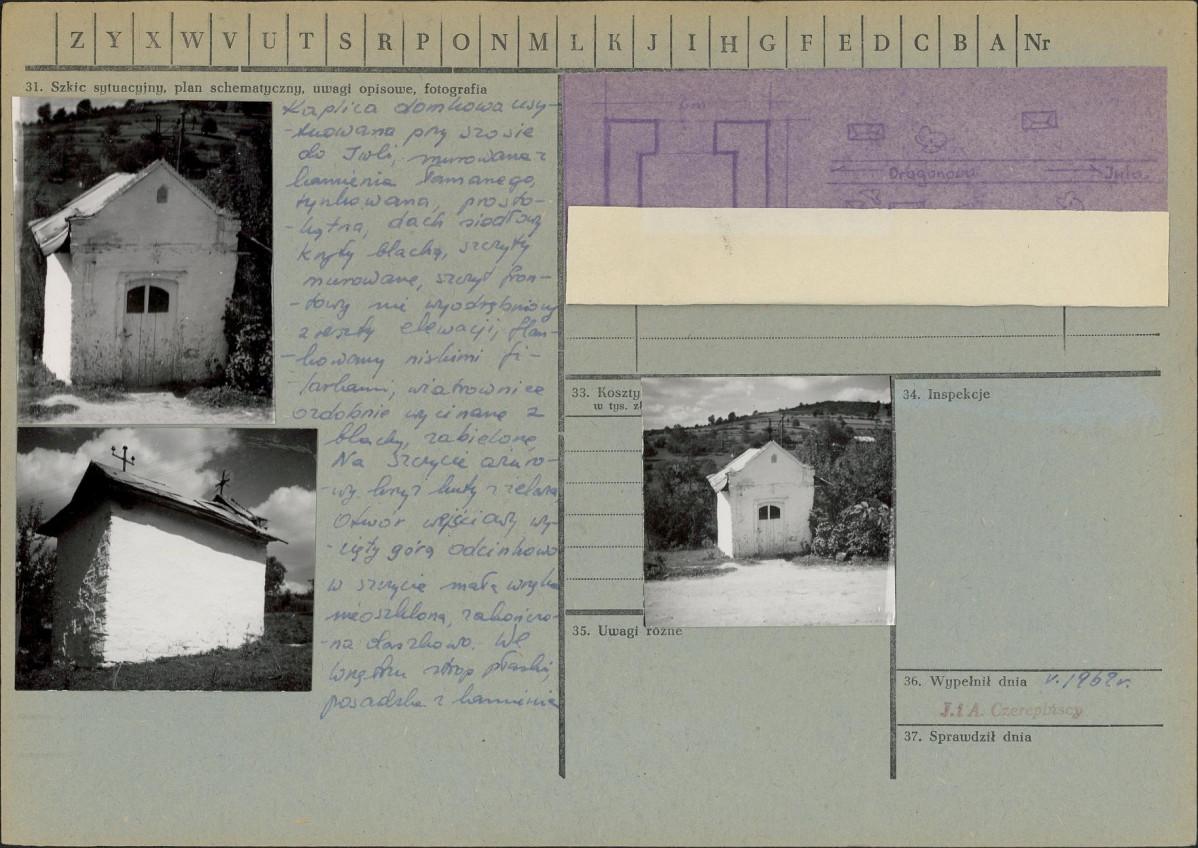 Z Y X W V U T S R P O N M L K J I H G F E D C B A Nr
31. Szkic sytuacyjny, plan schematyczny, uwagi opisowe, fotografia
Kaplica domkowa usy-
-tuowana przy szosie
do Iwli, murowana z
kamienia łamanego,
tynkowana, prosto-
-kątna, dach siodłowy
kryty blachą, szczyty
murowane, szczyt fron-
-towy nie wyodrębniony
z reszty elewacji, flan-
-kowany niskimi fi-
-larkami, wiatrownice
ozdobnie wycinane z
blachy, zabielone.
Na szczycie ażuro-
-wy krzyż kuty z żelaza
Otwór wejściowy wy-
-cięty górą odcinkowo
w szczycie mała wnęka
nieoszklona, zakończo-
-na daszkowo. We
wnętrzu strop płaski,
posadzka z kamienia
6m
Dragonowa
Iwla
33. Koszty
w tys. zł
34. Inspekcje
35. Uwagi różne
36. Wypełnił dnia V. 1969 r.
J. i A. Czerepińscy
37. Sprawdził dnia